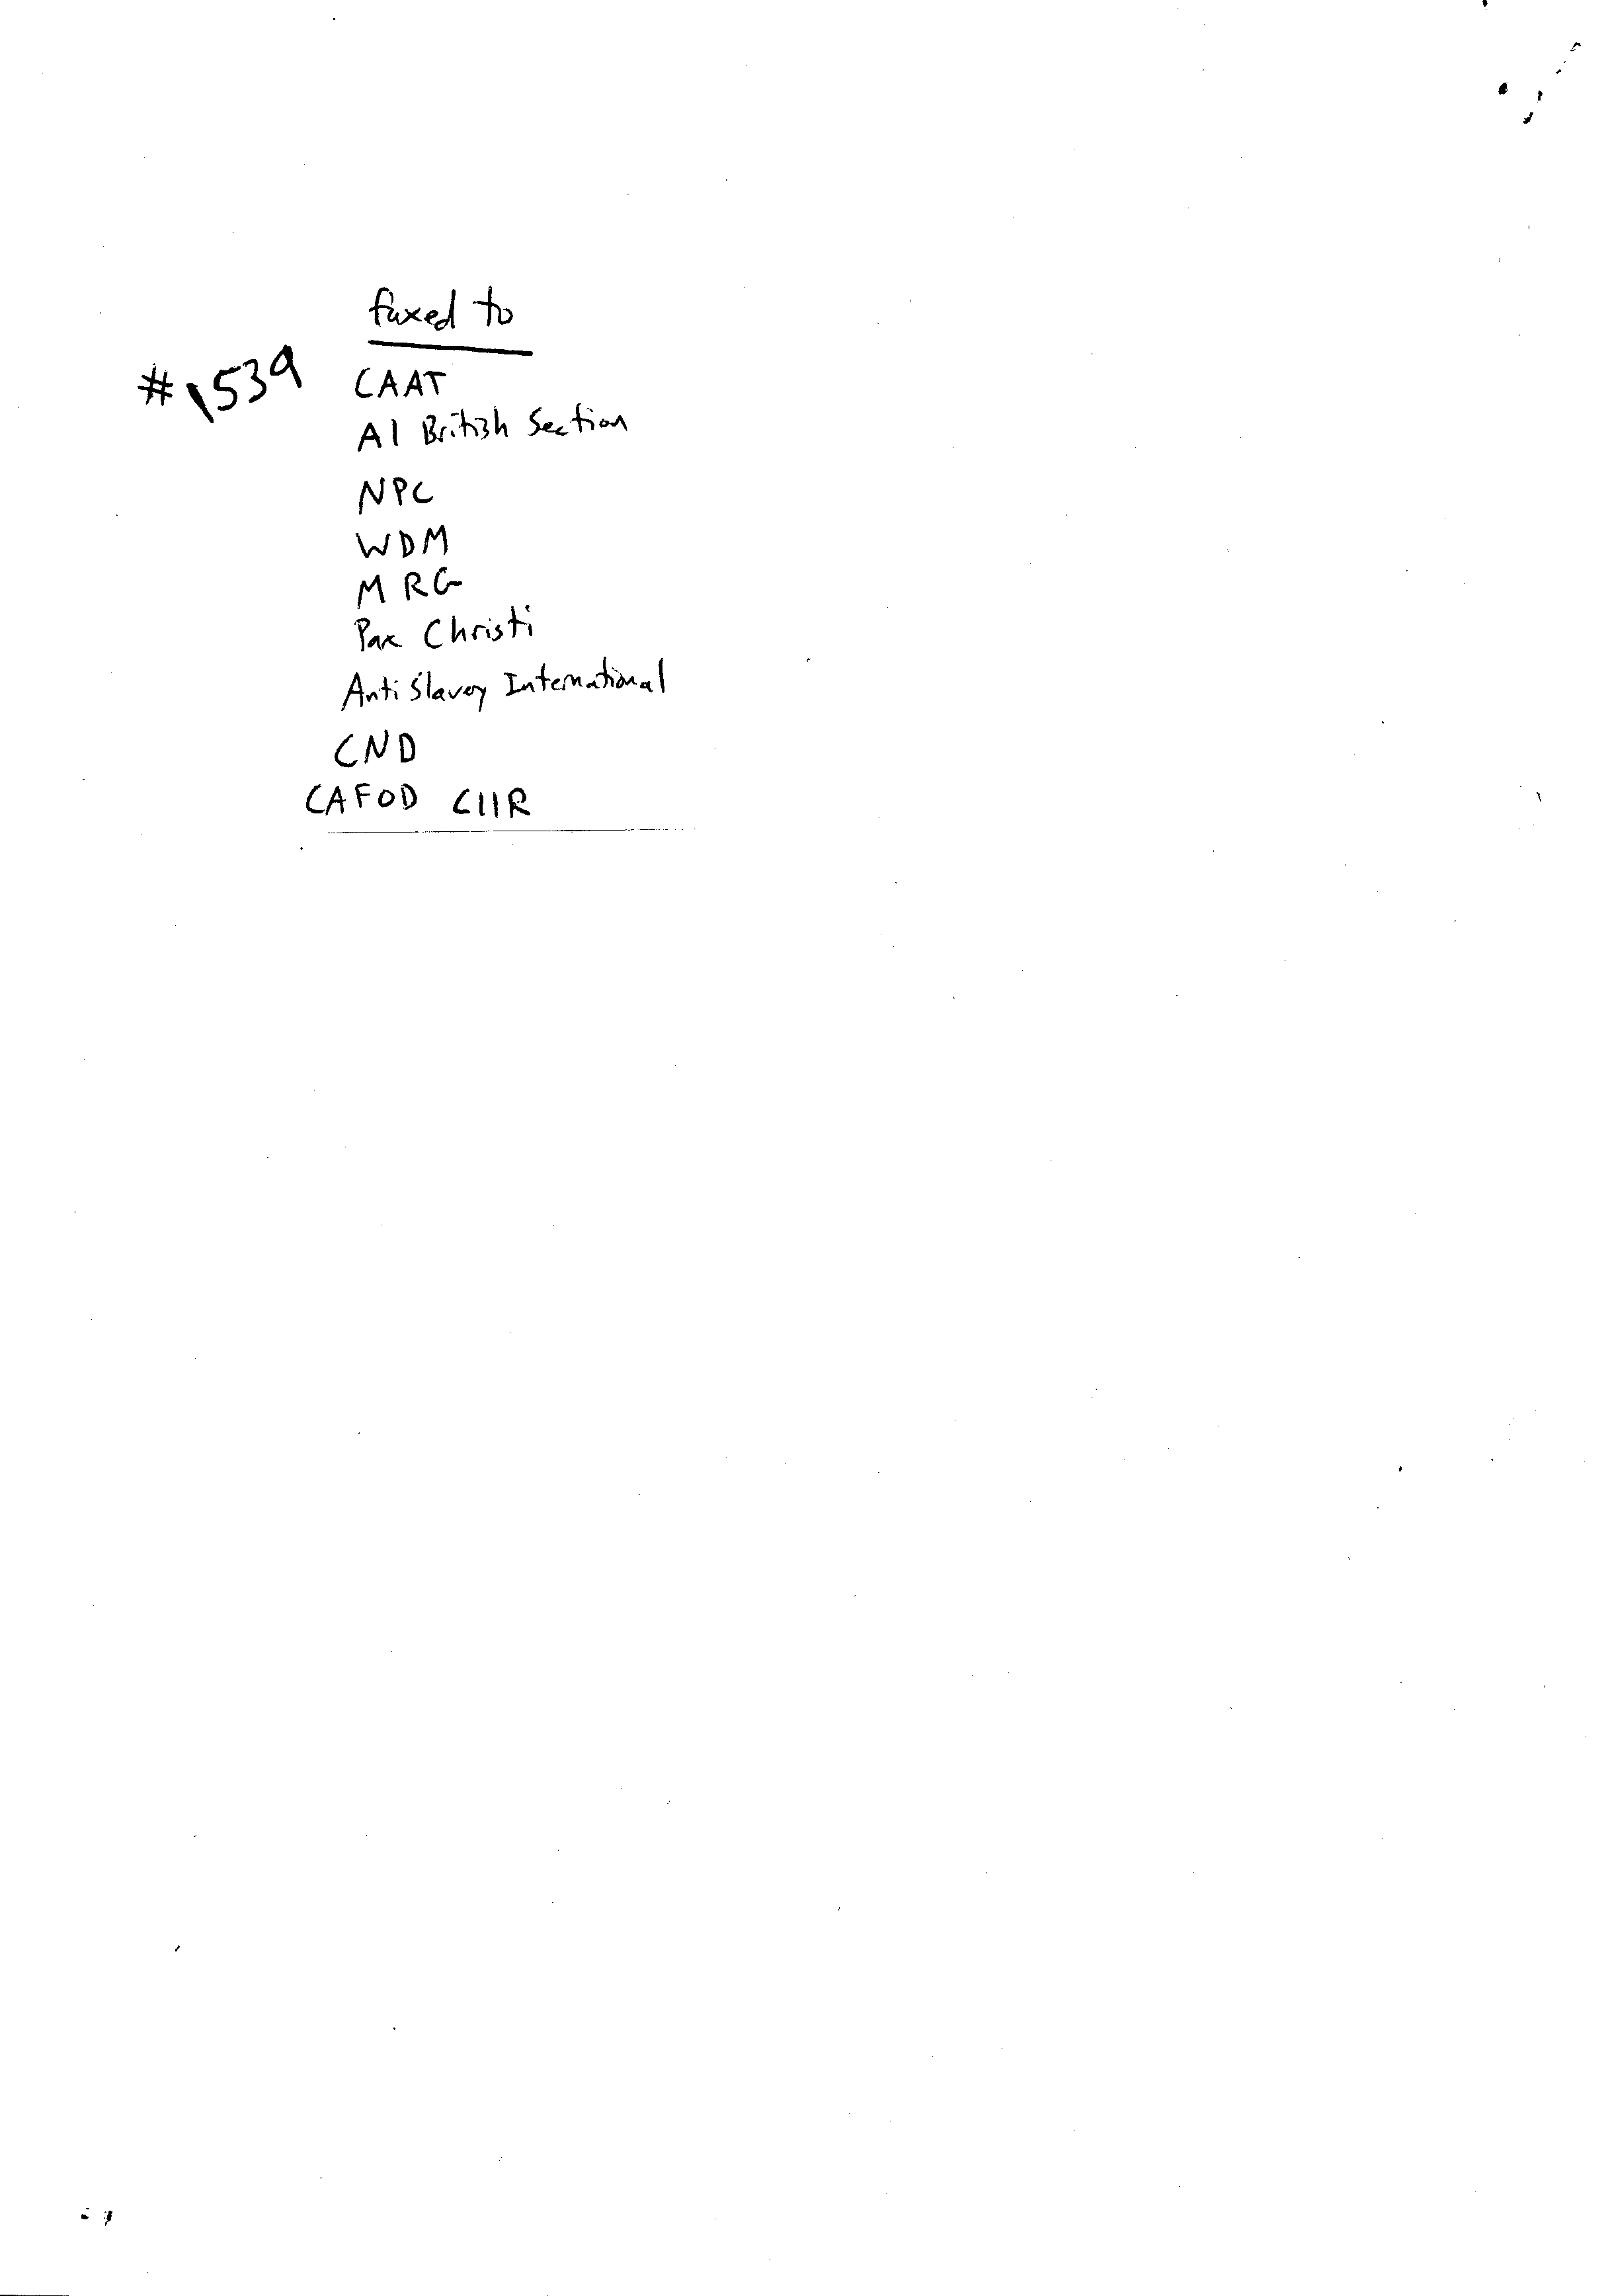 faxed to
#1539 CAAT
AI British Section
NPC
WDM
MRG
Pax Christi
Anti Slavery International
CND
CAFOD CIIR